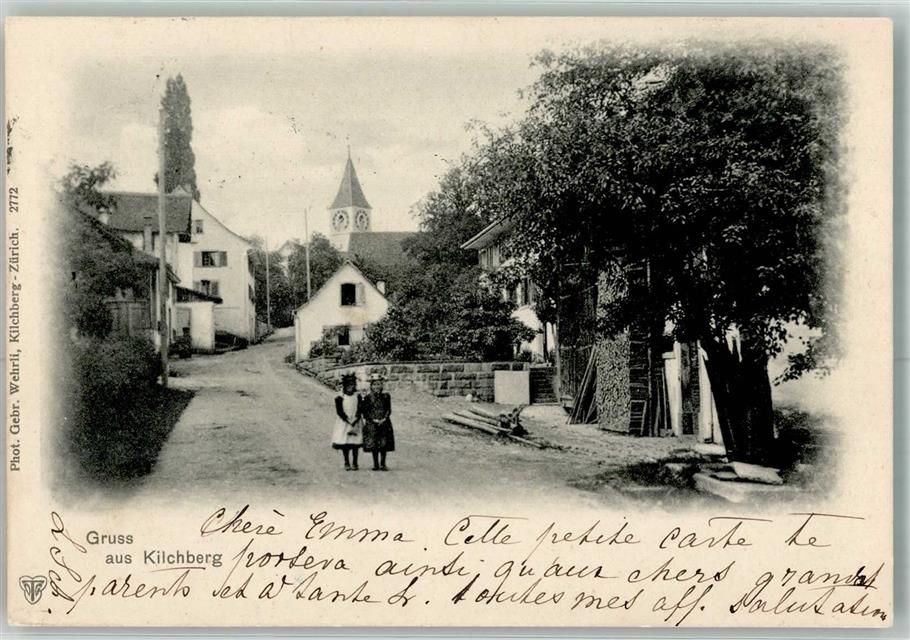 Phot. Gebr. Wehrli, Kilchberg - Zürich. 2772
Gruss
aus Kilchberg
Chère Emma. Cette petite carte te
portera ainsi qu'aux chers grand
parents et à tante toutes mes aff. Salutation